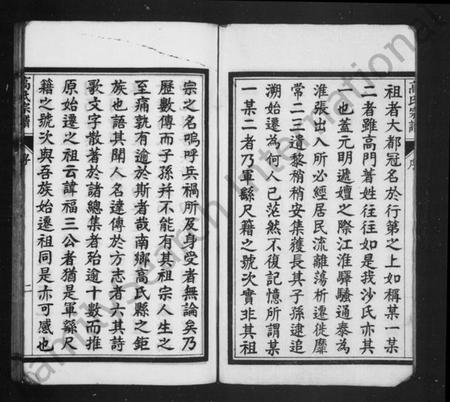 高氏宗譜
序
祖者大都冠名於行第之上如稱某一某
二者雖高門著姓往往如是我沙氏亦其
一也蓋元明遞嬗之際江淮驛騷通泰為
淮張出入所必經居民流離蕩析遷徙靡
常二三遺黎稍稍安集獲長其子孫逮追
溯始遷為何人已茫然不復記憶所謂某
一某二者乃軍縣尺籍之號次實非其祖
宗之名嗚呼兵禍所及身受者無論矣乃
歷數傳而子孫并不能有其祖宗人生之
至痛孰有逾於斯者哉南鄉高氏縣之鉅
族也語其聞人名達傳於方志者六其詩
歌文字散著於諸總集者殆逾十數而推
原始遷之祖云諱福三公者猶是軍縣尺
籍之號次與吾族始遷祖同是亦可感也
高氏宗譜
序
二